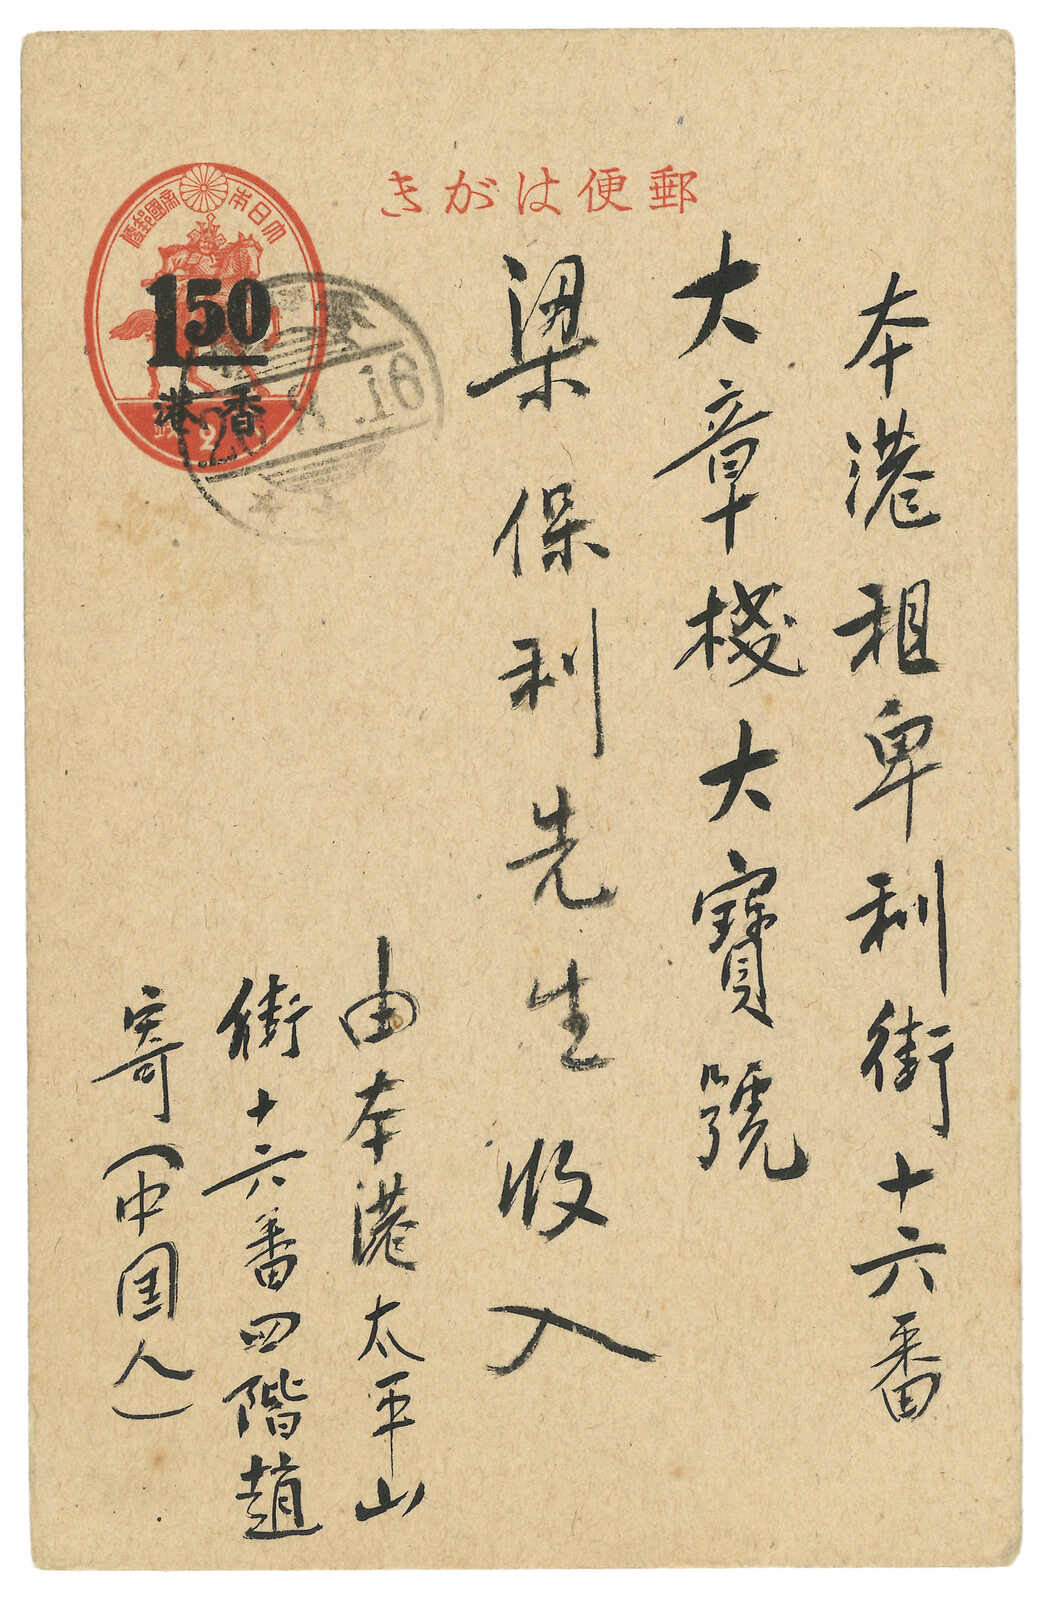 郵便はがき
大日本帝國郵便
1.50
香港
20.8.16
本港租卑利街十六番
大章棧大寶號
梁保利先生收入
由本港太平山
街十六番四階趙
寄(中国人)